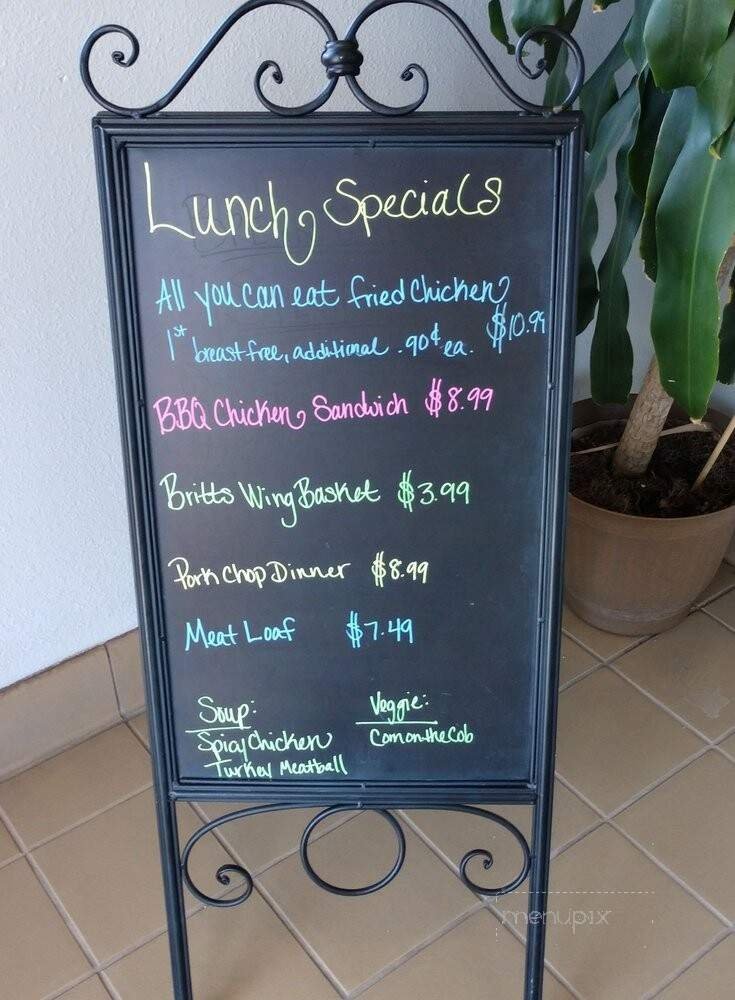 Lunch Specials
All you can eat fried Chicken
1st breast free, additional .90¢ ea. $10.99
BBQ Chicken Sandwich $8.99
Britts Wing Basket $3.99
Pork Chop Dinner $8.99
Meat Loaf $7.49
Soup: Veggie:
Spicy Chicken Corn on the Cob
Turkey Meatball
menupix